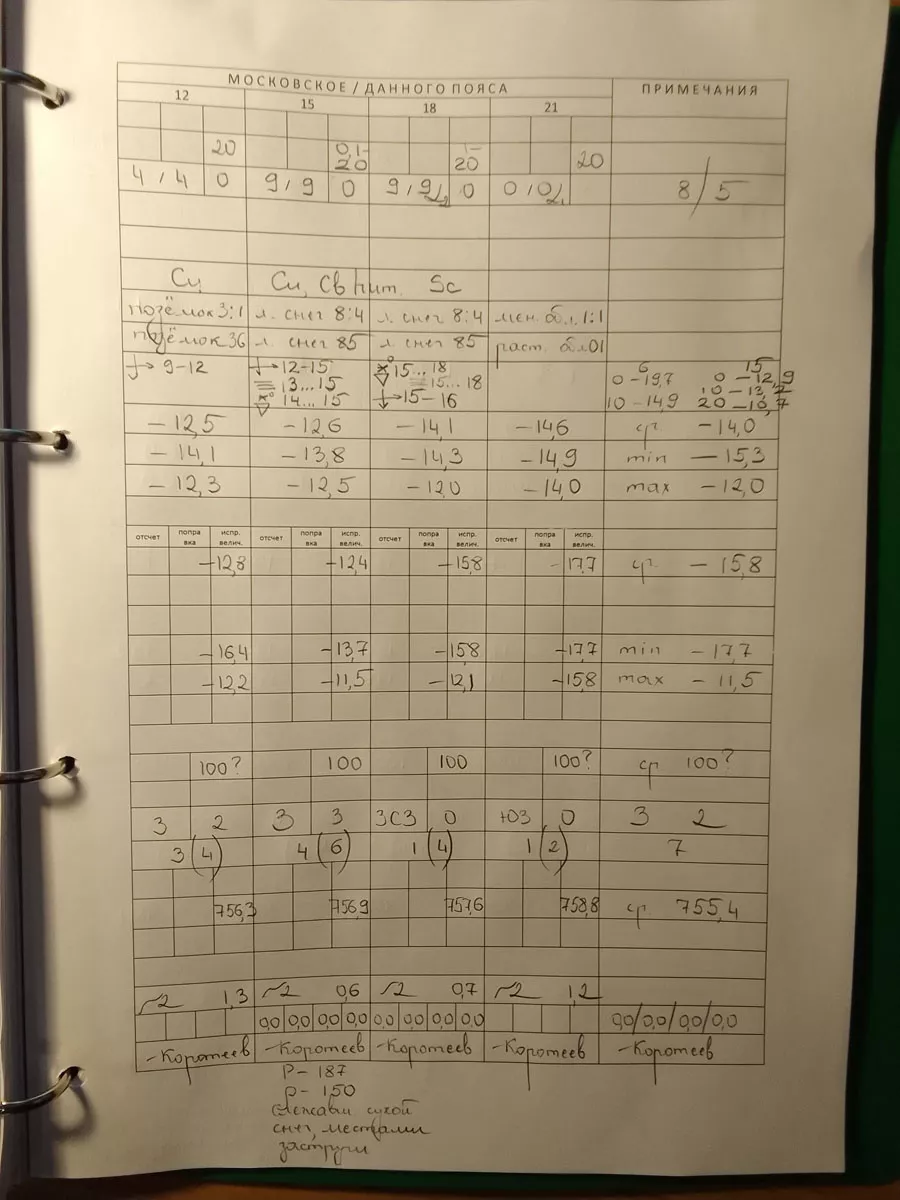 МОСКОВСКОЕ / ДАННОГО ПОЯСА ПРИМЕЧАНИЯ
12 15 18 21
20 0,1- 20 1- 20 20
4 / 4 0 9 / 9 0 9 / 9 0 0 / 0 8 / 5
Cu Cu, Cb Sc
позёмок 3:1 л. снег 8:4 л. снег 8:4 мен. бл. 1:1
позёмок 36 л. снег 85 л. снег 85 раст. бл 01
9-12 12-15 15...18 6 15
13...15 15...18 0 -19,7 0 -12,9
14...15 15-16 10 -13,2
10 -14,9 20 -10,7
-12,5 -12,6 -14,1 -14,6 ср -14,0
-14,1 -13,8 -14,3 -14,9 min -15,3
-12,3 -12,5 -12,0 -14,0 max -12,0
отсчет попра вка испр. велич. отсчет попра вка испр. велич. отсчет попра вка испр. велич. отсчет попра вка испр. велич.
-12,8 -12,4 -15,8 -17,7 ср. -15,8
-16,4 -13,7 -15,8 -17,7 min -17,7
-12,2 -11,5 -12,1 -15,8 max -11,5
100? 100 100 100? ср 100?
З 2 З 3 ЗСЗ 0 ЮЗ 0 З 2
3 (4) 4 (6) 1 (4) 1 (2) 7
756,3 756,9 757,6 758,8 ср 755,4
2 1,3 2 0,6 2 0,7 2 1,2
0,0 0,0 0,0 0,0 0,0 0,0 0,0 0,0 0,0/0,0/0,0/0,0
-Коротеев -Коротеев -Коротеев -Коротеев -Коротеев
P- 187
p- 150
сухой
снег, местами
заструги